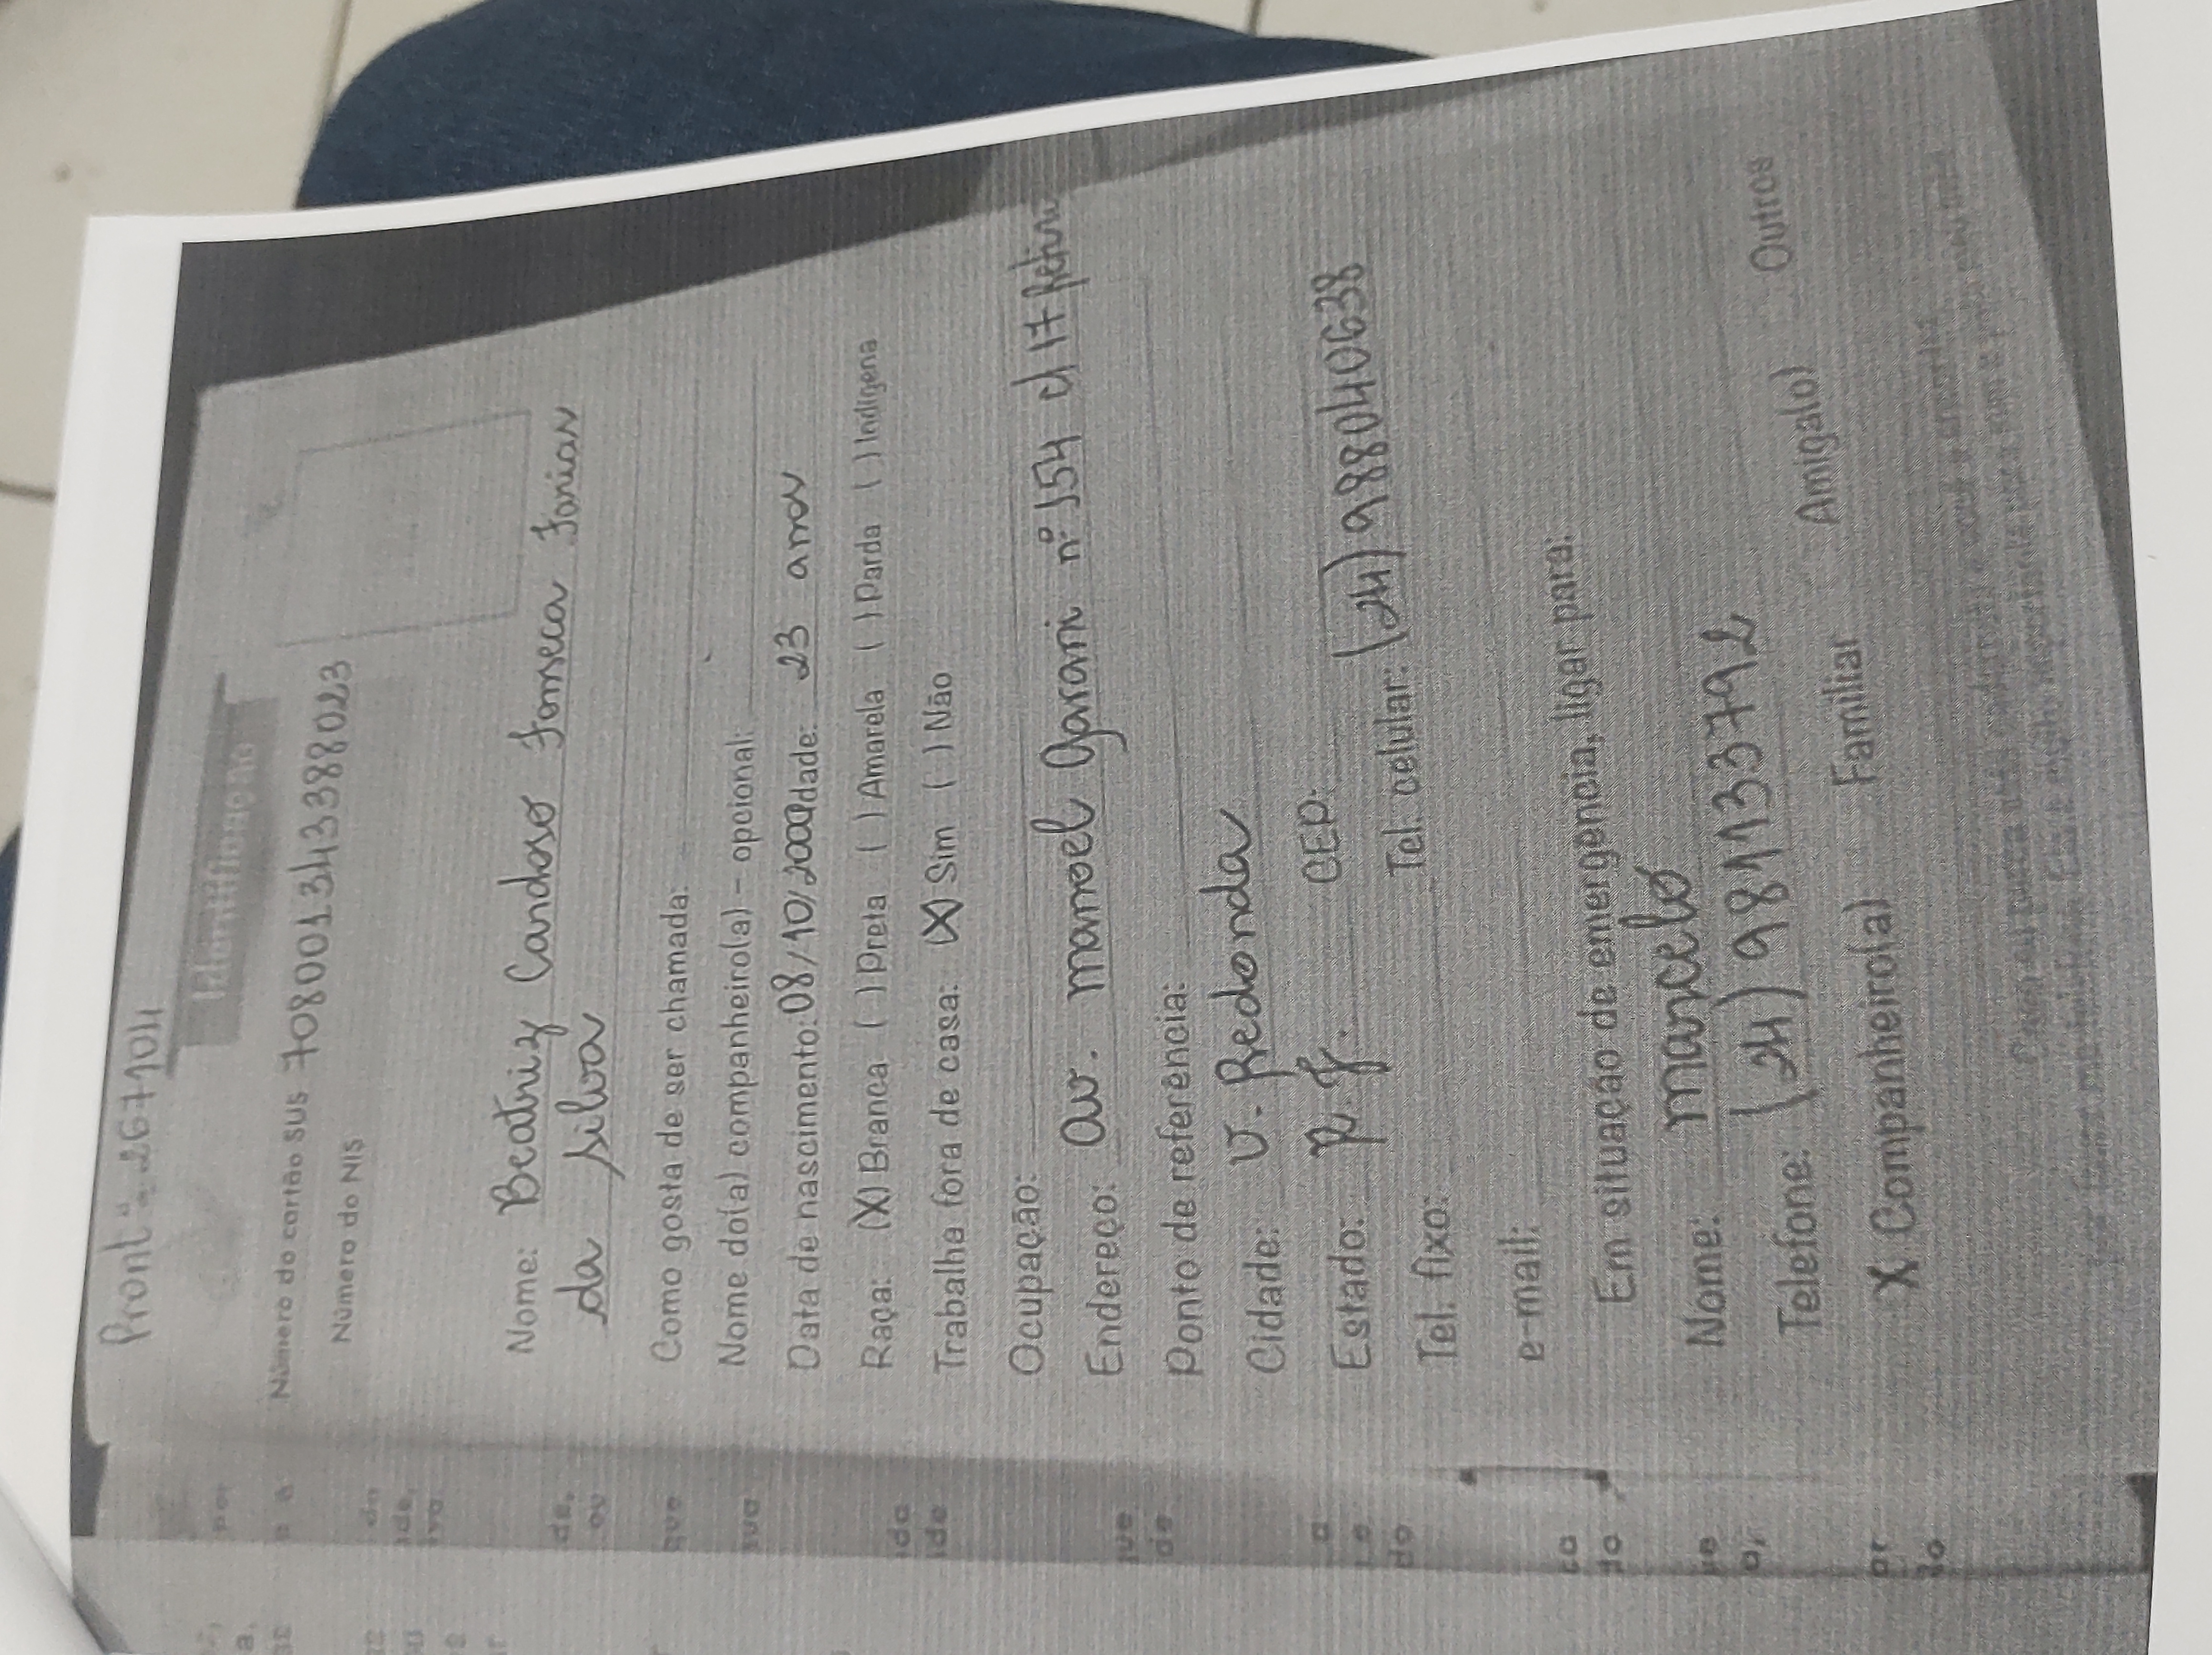 Pront º 267104
Identificação
Número do cartão SUS 708001343388023
Número do NIS
Nome: Beatriz Cardoso Fonseca Farias
da Silva
Como gosta de ser chamada:
Nome do(a) companheiro(a) - opcional:
Data de nascimento: 08/10/2000 Idade: 23 anos
Raça: (X) Branca ( ) Preta ( ) Amarela ( ) Parda ( ) Indígena
Trabalha fora de casa: (X) Sim ( ) Não
Ocupação:
Endereço: Av. Manoel nº 154 17 Retiro
Ponto de referência:
Cidade: V. Redonda
Estado: R.J. CEP:
Tel. fixo: Tel. celular: (24) 988040638
e-mail:
Em situação de emergência, ligar para:
Nome: Marcelo
Telefone: (24) 981133792
X Companheiro(a) Familiar Amiga(o) Outros